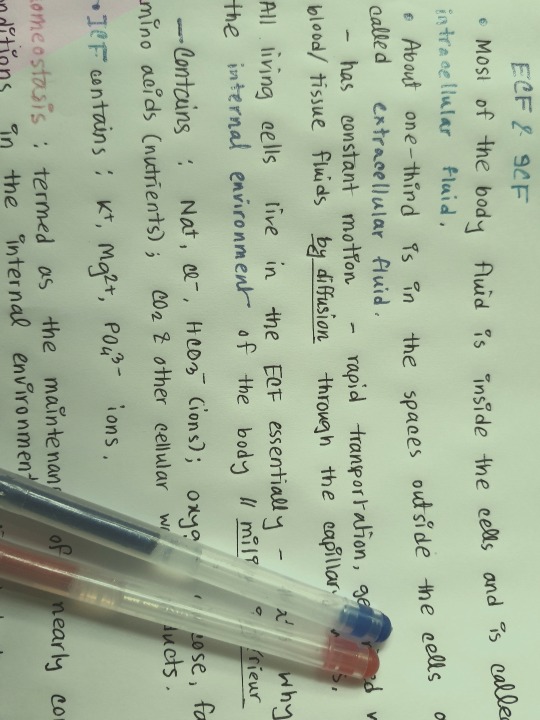 ECF & ICF
• Most of the body fluid is inside the cells and is called
intracellular fluid.
• About one-third is in the spaces outside the cells
called extracellular fluid.
- has constant motion - rapid tranportation,
blood/tissue fluids by diffusion through the
All living cells live in the ECF essentially - why
the internal environment of the body //
→ Contains : Na⁺, Cl⁻, HCO3⁻ (ions);
amino acids (nutrients); CO2 & other cellular
• ICF contains : K⁺, Mg²⁺, PO4³⁻ ions.
homeostasis : termed as the of nearly
conditions in the internal environment